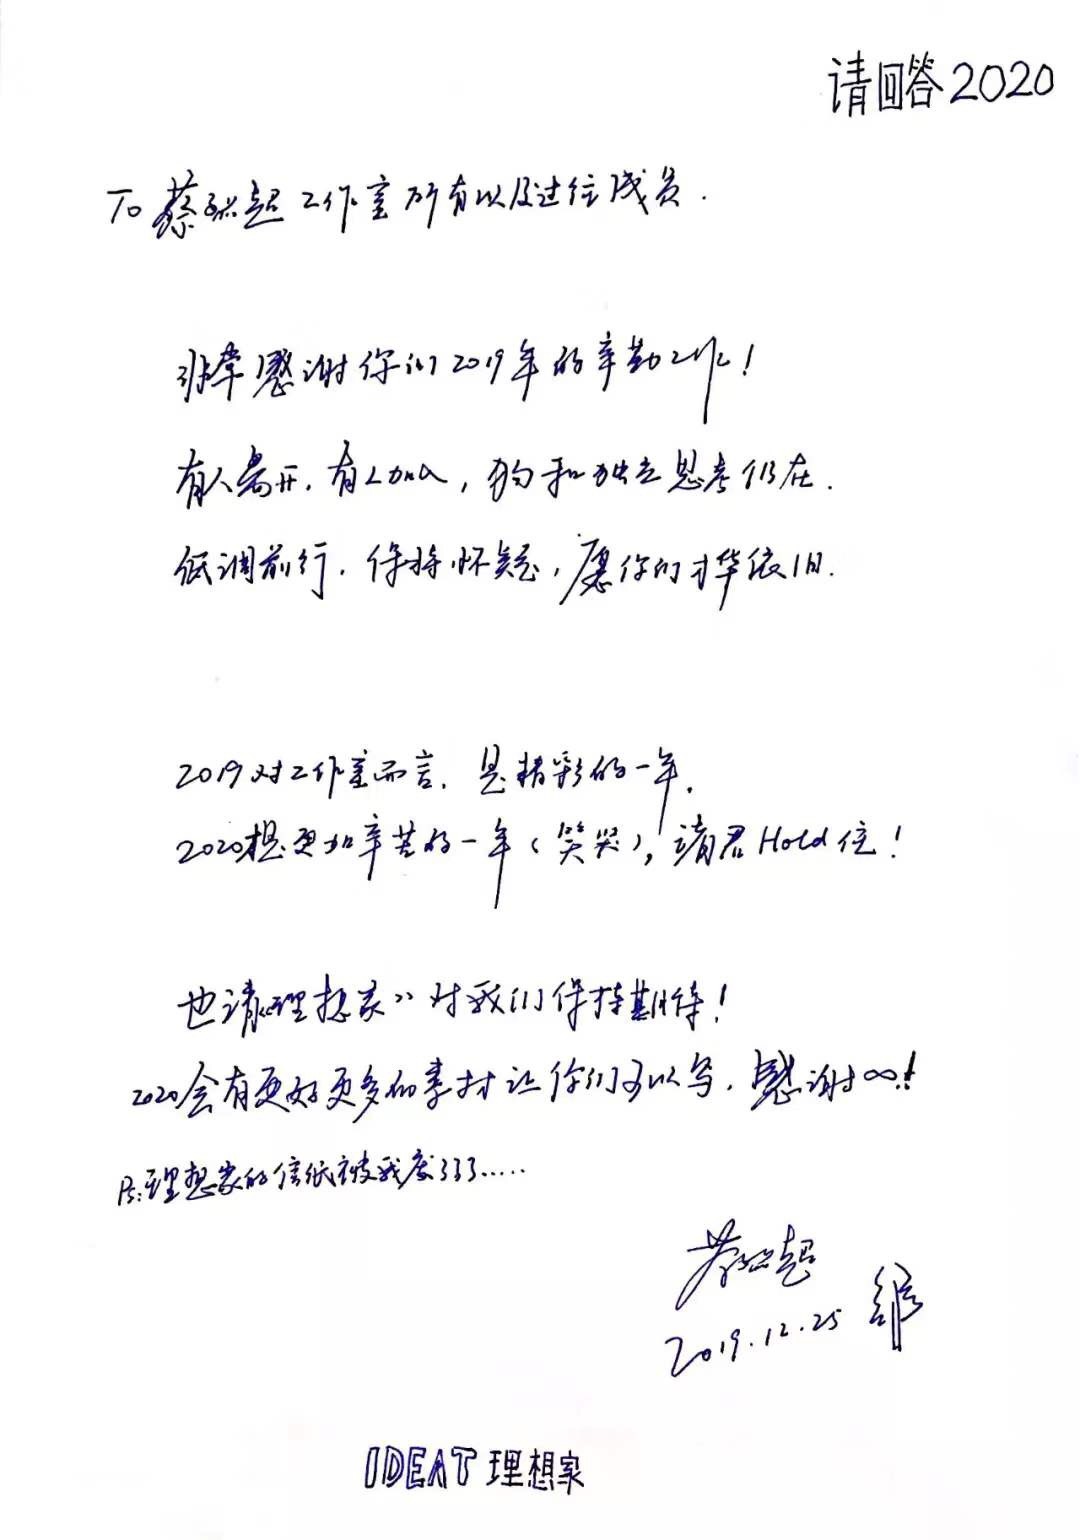 请回答2020
To 蔡烈超工作室所有以及过往成员.
非常感谢你们2019年的辛勤工作!
有人离开,有人加入,狗和独立思考仍在.
低调前行.保持怀疑,愿你们才华依旧.
2019对工作室而言.是精彩的一年.
2020想更加辛苦的一年(笑哭),请君Hold住!
也请《理想家》对我们保持期待!
2020会有更好更多的素材让你们可以写.感谢∞!
PS:理想家的信纸被我废了了了......
蔡烈超
2019.12.25
IDEAT 理想家